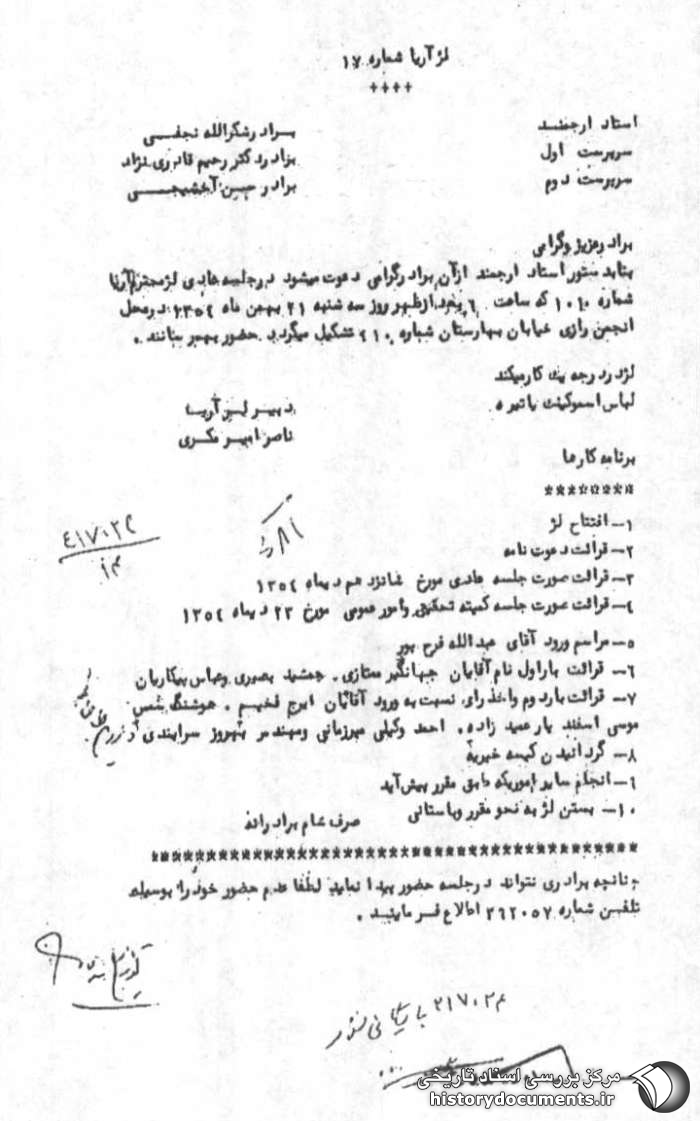 لژ آریا شماره ۱۷
++++
استاد ارجمند برادر شکرالله نجفی
سرپرست اول برادر دکتر رحیم قادری نژاد
سرپرست دوم برادر حسن آخشیجی
برادر عزیز و گرامی
بنابد ستور استاد ارجمند از آن برادر گرامی دعوت میشود در جلسه عادی لژ محترم آریا
شماره ۱۰۱۰ که ساعت ۶ بعد از ظهر روز سه شنبه ۲۱ بهمن ماه ۱۳۵۴ در محل
انجمن رازی خیابان بهارستان شماره ۴۱۰ تشکیل میگردد حضور بهم رسانند .
لژ در درجه یک کار میکند
لباس اسموکینگ یا تیره دبیر لژ آریا
ناصر امیر مکری
برنامه کارها
********
۱- افتتاح لژ
۲- قرائت دعوت نامه
۳- قرائت صورت جلسه عادی مورخ شانزدهم دیماه ۱۳۵۴
۴- قرائت صورت جلسه کمیته تحقیق و امور عمومی مورخ ۲۳ دیماه ۱۳۵۴
۵- مراسم ورود آقای عبدالله فرح پور
۶- قرائت بار اول نام آقایان جهانگیر ممتازی . جمشید بصیری و عباس پیکاریان
۷- قرائت بار دوم و اخذ رای نسبت به ورود آقایان ایرج فخیم . هوشنگ شمس
موسی اسفندیار عمید زاده . احمد وکیلی میرزمانی و مهندس بهروز سرابندی
۸- گردانیدن کیسه خیریه
۹- انجام سایر اموریکه طبق مقرر پیش آید
۱۰- بستن لژ به نحو مقرر و باستانی صرف شام برادرانه
************************************************
چنانچه برادری نتواند در جلسه حضور پیدا نماید لطفا عدم حضور خود را بوسیله
تلفن شماره ۳۹۲۰۵۷ اطلاع فرمایند .
۴۱۷۰۲۴
۲۱۷۰۲۴
مرکز بررسی اسناد تاریخی
historydocuments.ir